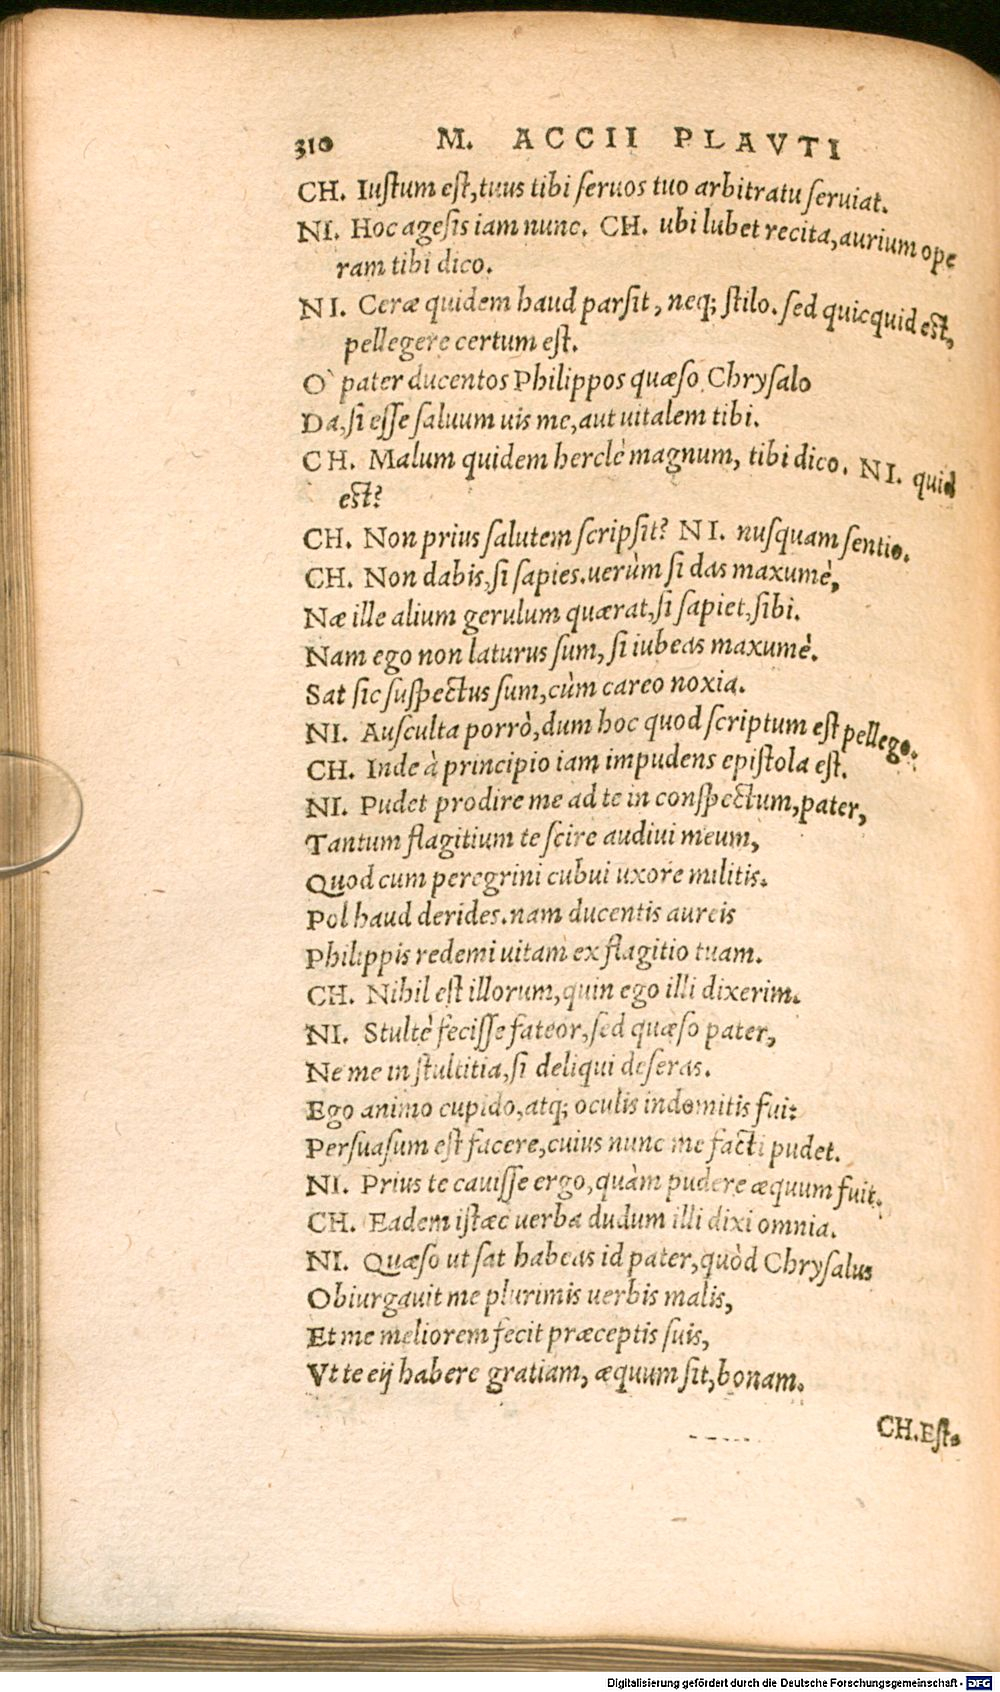 310 M. ACCII PLAVTI
CH. Iustum est, tuus tibi seruos tuo arbitratu seruiat.
NI. Hoc agesis iam nunc. CH. ubi lubet recita, aurium ope
ram tibi dico.
NI. Ceræ quidem haud parsit, neq; stilo. sed quicquid est,
pellegere certum est.
O` pater ducentos Philippos quæso Chrysalo
Da, si esse saluum uis me, aut uitalem tibi.
CH. Malum quidem herclè magnum, tibi dico. NI. quid
est?
CH. Non prius salutem scripsit? NI. nusquam sentio.
CH. Non dabis, si sapies. uerùm si das maxumè,
Næ ille alium gerulum quærat, si sapiet, sibi.
Nam ego non laturus sum, si iubeas maxumè.
Sat sic suspectus sum, cùm careo noxia.
NI. Ausculta porrò, dum hoc quod scriptum est pellego.
CH. Inde à principio iam impudens epistola est.
NI. Pudet prodire me ad te in conspectum, pater,
Tantum flagitium te scire audiui meum,
Quod cum peregrini cubui uxore militis.
Pol haud derides. nam ducentis aureis
Philippis redemi uitam ex flagitio tuam.
CH. Nihil est illorum, quin ego illi dixerim.
NI. Stultè fecisse fateor, sed quæso pater,
Ne me in stultitia, si deliqui deseras.
Ego animo cupido, atq; oculis indomitis fui:
Persuasum est facere, cuius nunc me facti pudet.
NI. Prius te cauisse ergo, quàm pudere æquum fuit.
CH. Eadem istæc uerba dudum illi dixi omnia.
NI. Quæso ut sat habeas id pater, quòd Chrysalus
Obiurgauit me plurimis uerbis malis,
Et me meliorem fecit præceptis suis,
Vt te eij habere gratiam, æquum sit, bonam.
CH. Est.
Digitalisierung gefördert durch die Deutsche Forschungsgemeinschaft - DFG